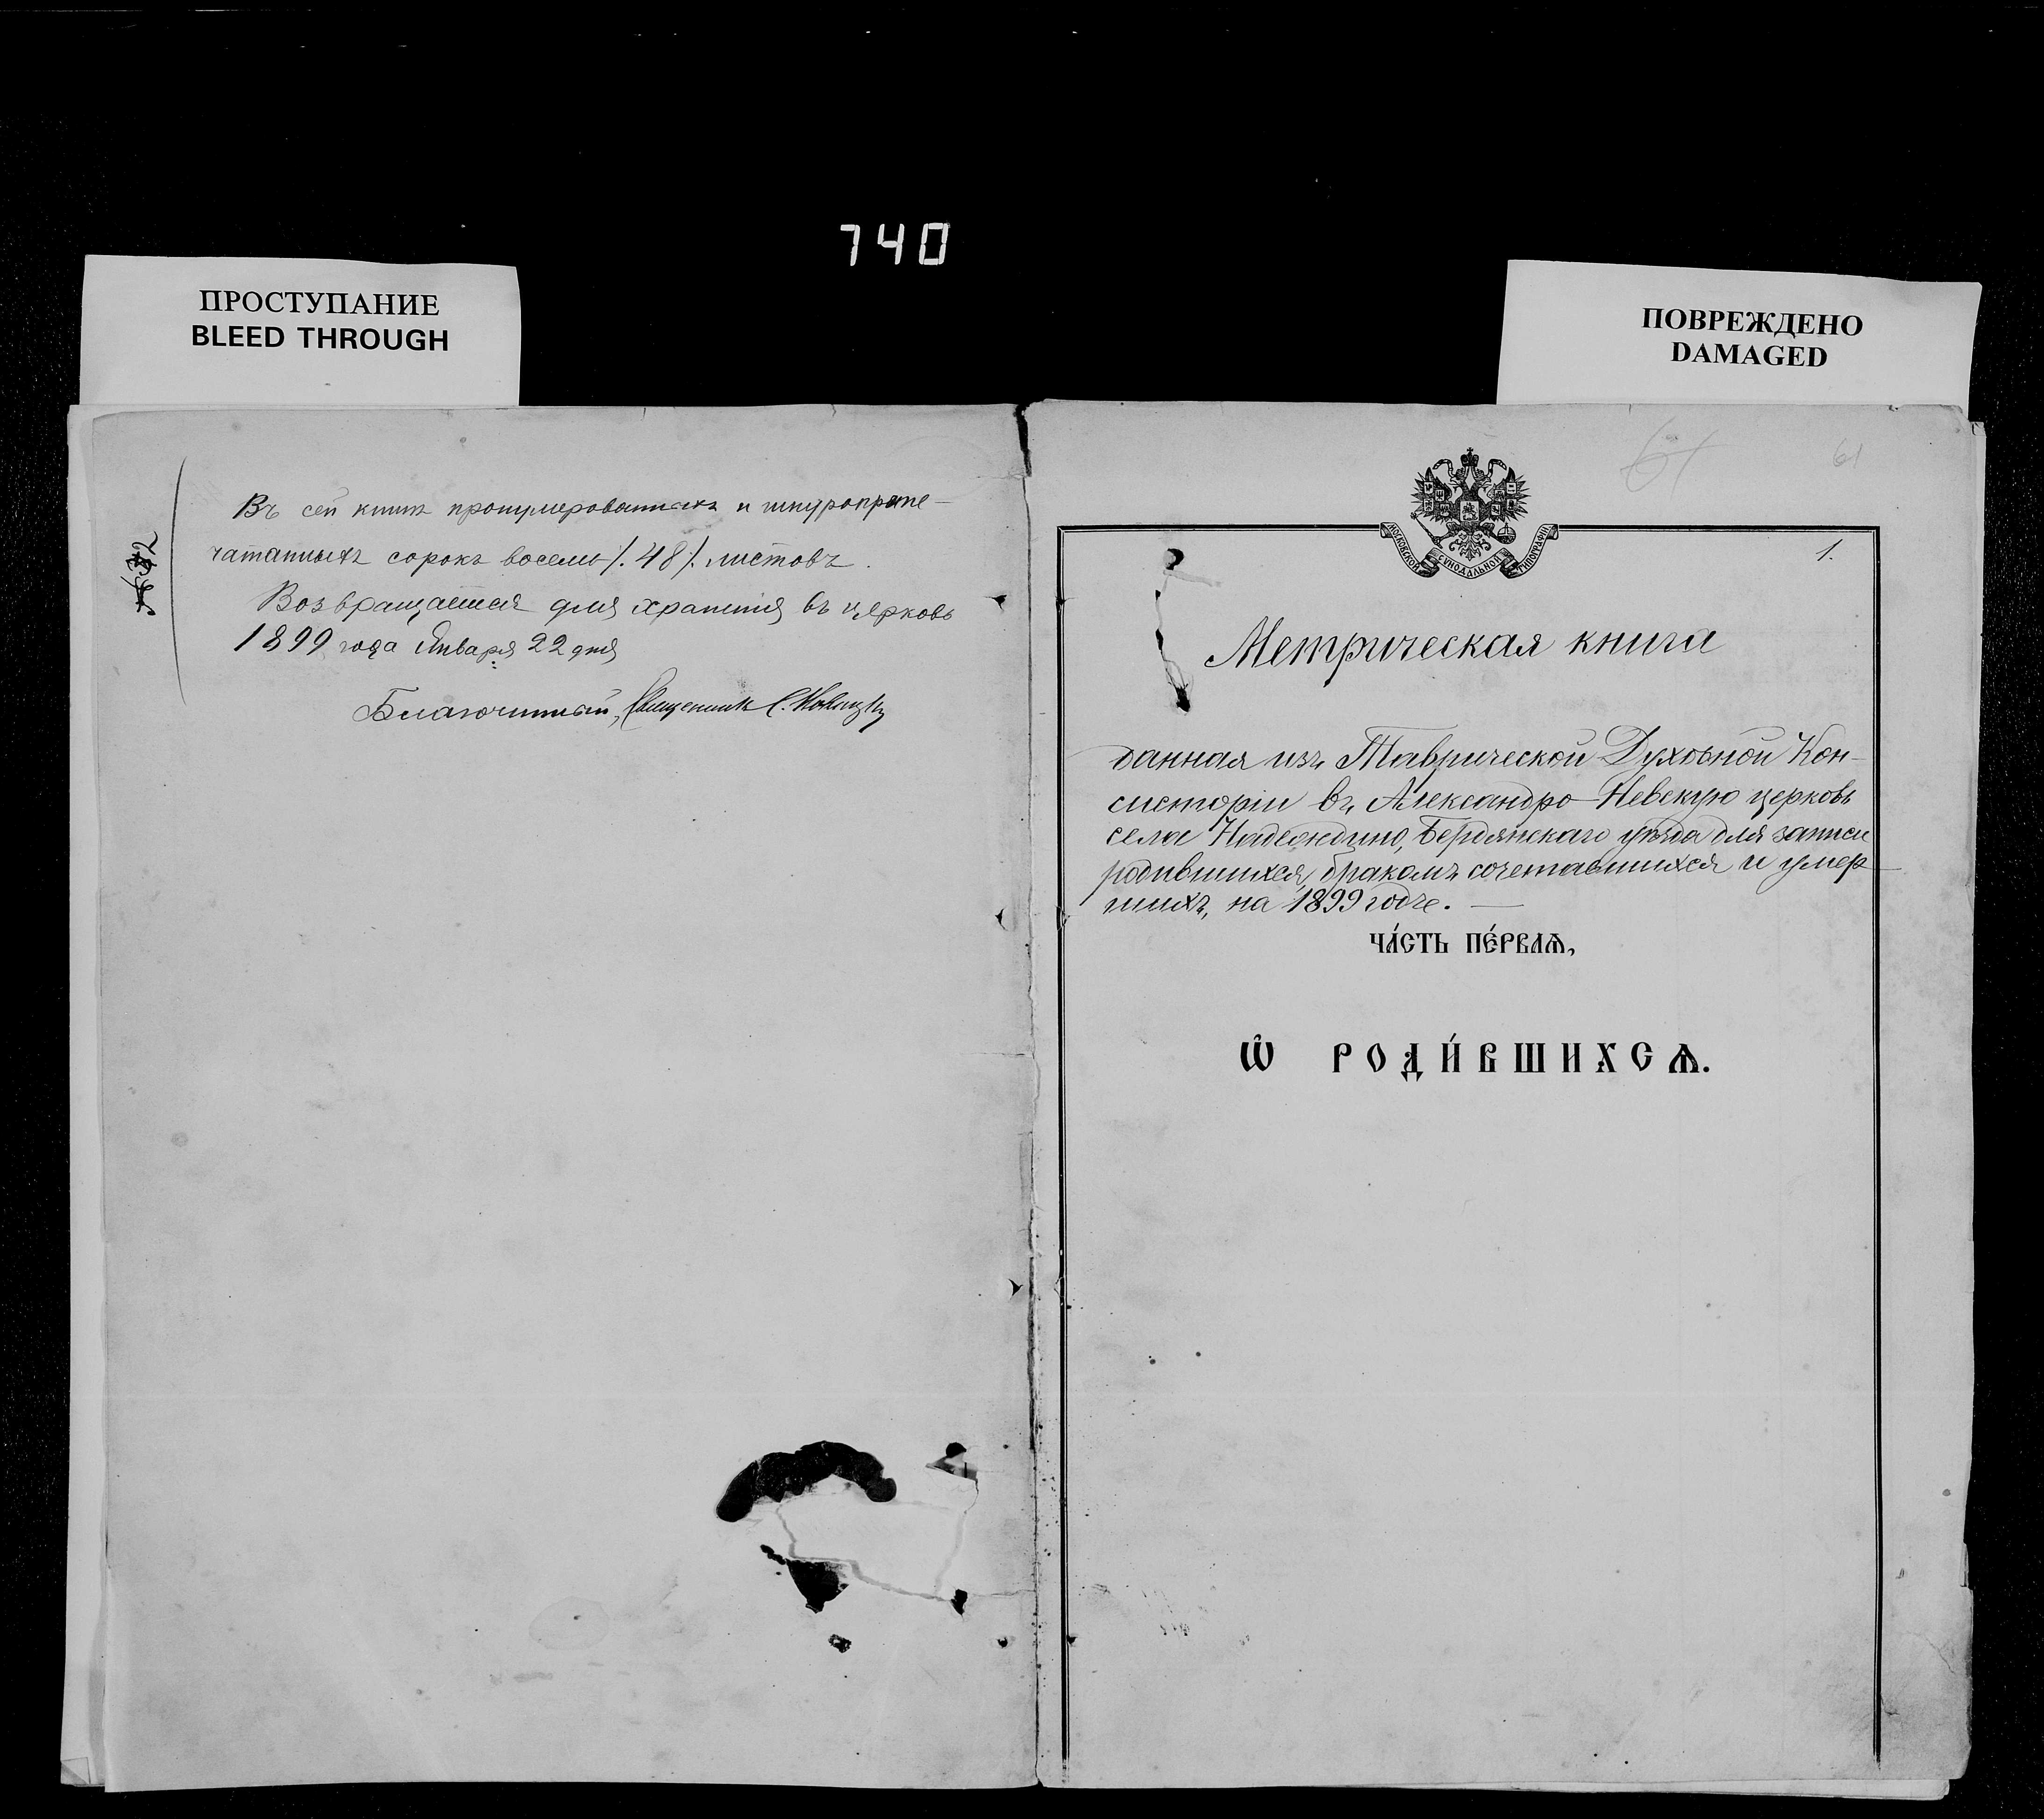 740
ПРОСТУПАНИЕ
BLEED THROUGH
ПОВРЕЖДЕНО
DAMAGED
Въ сей книгѣ пронумерованныхъ и шнуропрпе-
чатанныхъ сорокъ восемь /. 48 /. листовъ.
Возвращается для храненія въ церковь
1899 года Января 22 дня
Благочинный, Священникъ С.
61
61
МОСКОВСКОЙ СѴНОДАЛЬНОЙ ТИПОГРАФІИ
1.
Метрическая книга
данная изъ Таврической Духовной Кон-
систоріи въ Александро-Невскую церковь
села Надеждино, Бердянскаго уѣзда для записи
родившихся, бракомъ сочетавшихся и умер-
шихъ, на 1899 годъ. —
ЧА́СТЬ ПЕ́РВАѦ,
Ѽ РОДИ́ВШИХСѦ.